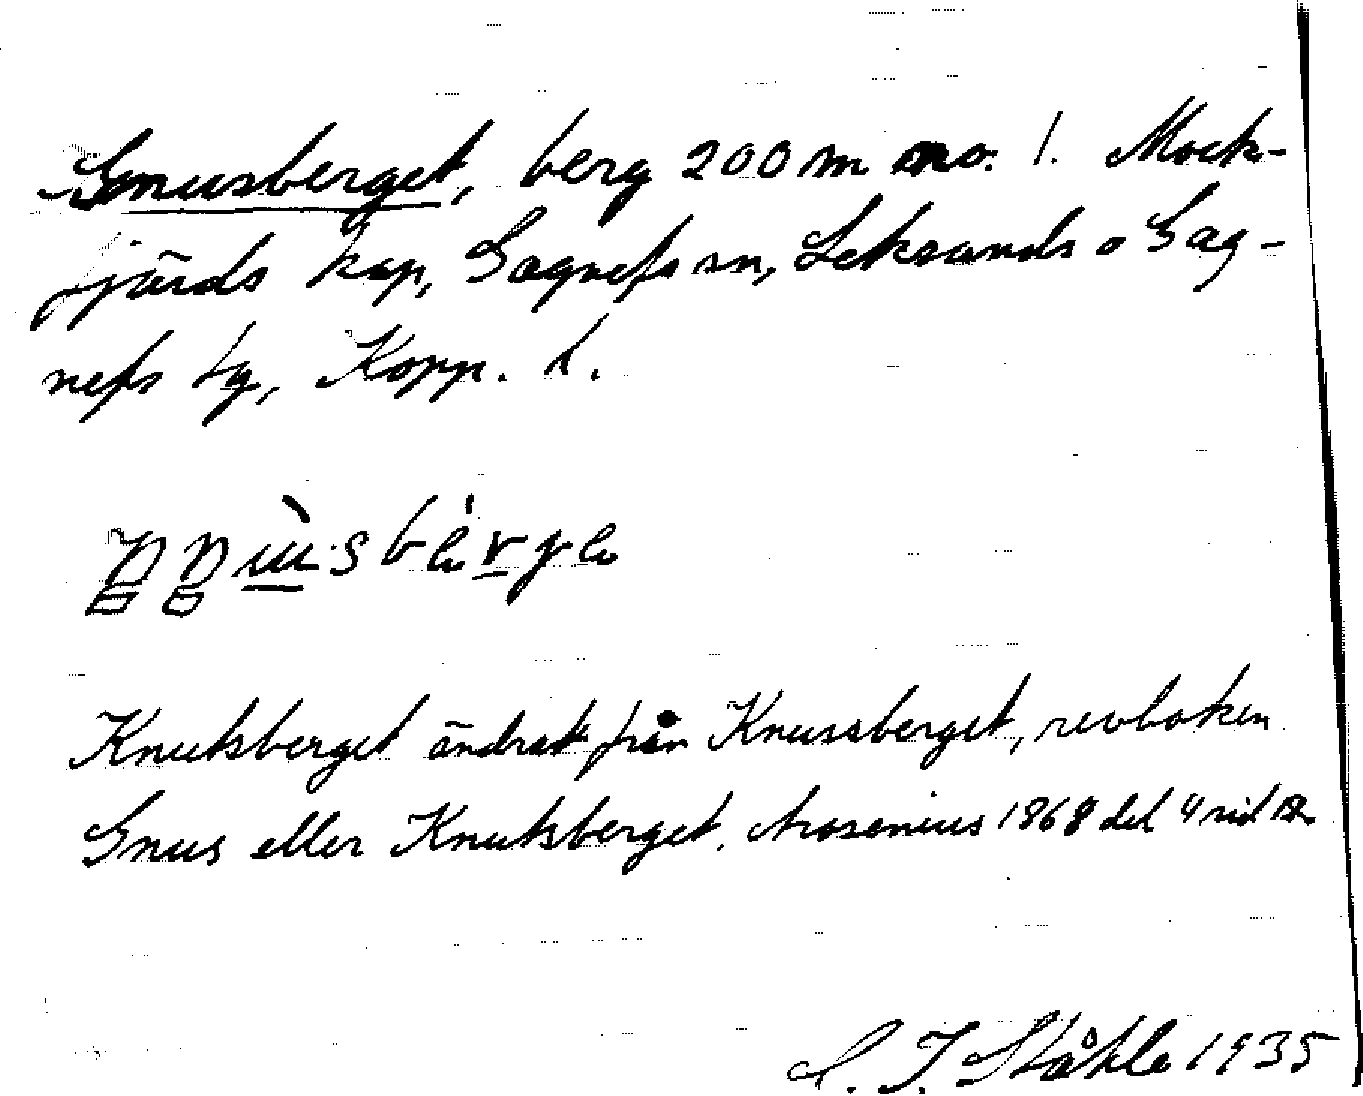 Gnusberget, berg 200 m no. l. Mock-
fjärds kap, Gagnefs sn, Leksands o Gag-
nefs tg, Kopp. l.
Knutsberget ändrat från Knussberget, revboken
Gnus eller Knutsberget. Arosenius 1868 del 4 sid
C. I. Ståhle 1935